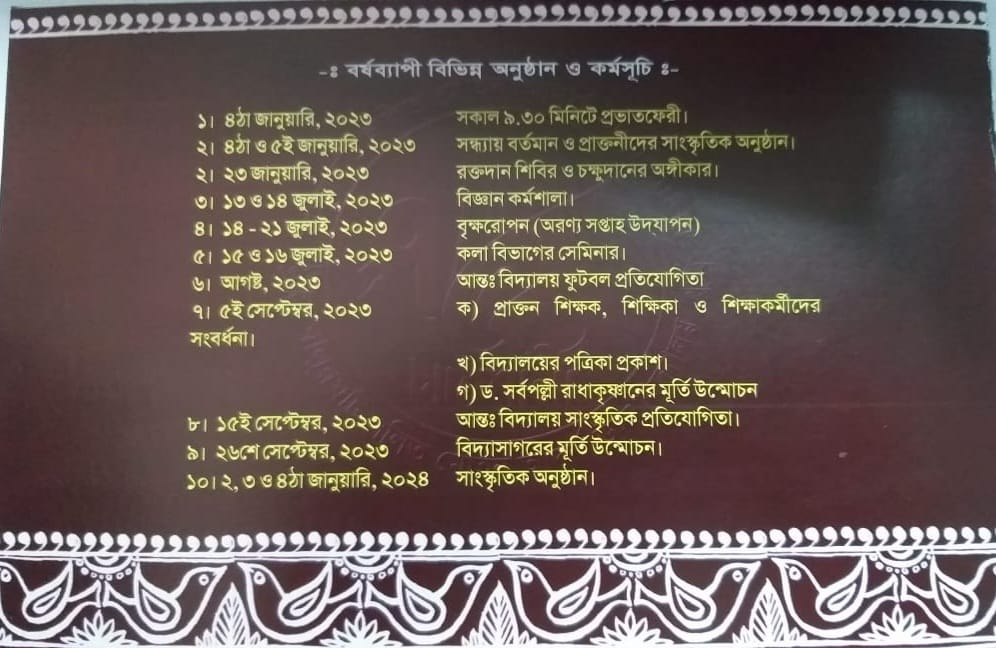 -ঃ বর্ষব্যাপী বিভিন্ন অনুষ্ঠান ও কর্মসূচি ঃ-
১। ৪ঠা জানুয়ারি, ২০২৩ সকাল ৯.৩০ মিনিটে প্রভাতফেরী।
২। ৪ঠা ও ৫ই জানুয়ারি, ২০২৩ সন্ধ্যায় বর্তমান ও প্রাক্তনীদের সাংস্কৃতিক অনুষ্ঠান।
২। ২৩ জানুয়ারি, ২০২৩ রক্তদান শিবির ও চক্ষুদানের অঙ্গীকার।
৩। ১৩ ও ১৪ জুলাই, ২০২৩ বিজ্ঞান কর্মশালা।
৪। ১৪ - ২১ জুলাই, ২০২৩ বৃক্ষরোপন (অরণ্য সপ্তাহ উদযাপন)
৫। ১৫ ও ১৬ জুলাই, ২০২৩ কলা বিভাগের সেমিনার।
৬। আগষ্ট, ২০২৩ আন্তঃ বিদ্যালয় ফুটবল প্রতিযোগিতা
৭। ৫ই সেপ্টেম্বর, ২০২৩ ক) প্রাক্তন শিক্ষক, শিক্ষিকা ও শিক্ষাকর্মীদের
সংবর্ধনা।
খ) বিদ্যালয়ের পত্রিকা প্রকাশ।
গ) ড. সর্বপল্লী রাধাকৃষ্ণানের মূর্তি উন্মোচন
৮। ১৫ই সেপ্টেম্বর, ২০২৩ আন্তঃ বিদ্যালয় সাংস্কৃতিক প্রতিযোগিতা।
৯। ২৬শে সেপ্টেম্বর, ২০২৩ বিদ্যাসাগরের মূর্তি উন্মোচন।
১০। ২, ৩ ও ৪ঠা জানুয়ারি, ২০২৪ সাংস্কৃতিক অনুষ্ঠান।